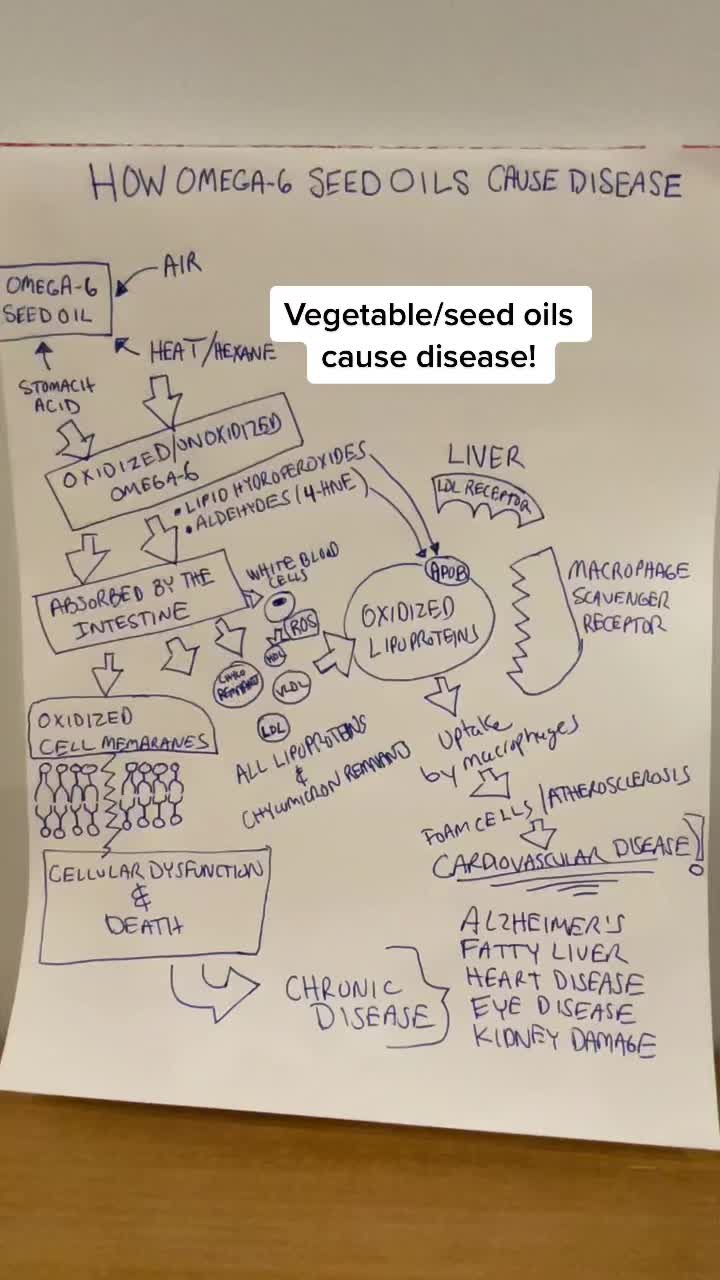 HOW OMEGA-6 SEED OILS CAUSE DISEASE
OMEGA-6
SEED OIL
AIR
HEAT/HEXANE
STOMACH
ACID
Vegetable/seed oils
cause disease!
OXIDIZED/UNOXIDIZED
OMEGA-6
• LIPID HYDROPEROXIDES
• ALDEHYDES (4-HNE)
LIVER
LDL RECEPTOR
ABSORBED BY THE
INTESTINE
WHITE BLOOD
CELLS
ROS
HDL
CHYLO
REMNANT
VLDL
LDL
ALL LIPOPROTEINS
&
CHYLOMICRON REMNANT
APOB
OXIDIZED
LIPOPROTEINS
MACROPHAGE
SCAVENGER
RECEPTOR
OXIDIZED
CELL MEMARANES
Uptake
by macrophages
FOAM CELLS/ATHEROSCLEROSIS
CARDIOVASCULAR DISEASE!
CELLULAR DYSFUNCTION
&
DEATH
CHRONIC
DISEASE
ALZHEIMER'S
FATTY LIVER
HEART DISEASE
EYE DISEASE
KIDNEY DAMAGE